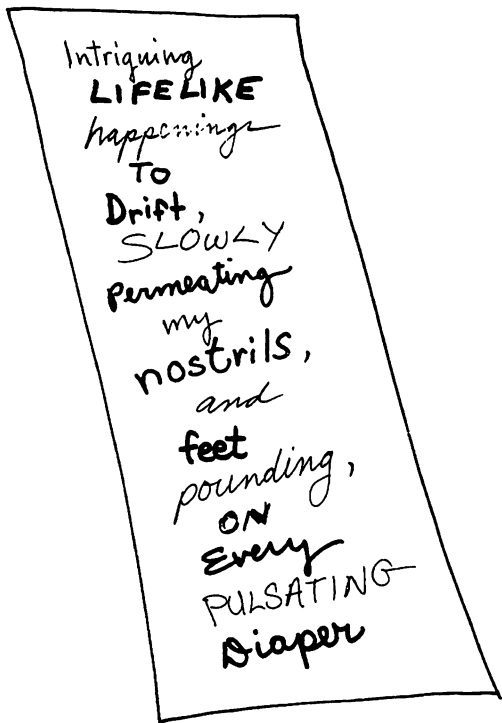 Intriguing
LIFELIKE
happenings
TO
Drift,
SLOWLY
permeating
my
nostrils,
and
feet
pounding,
ON
Every
PULSATING
Diaper